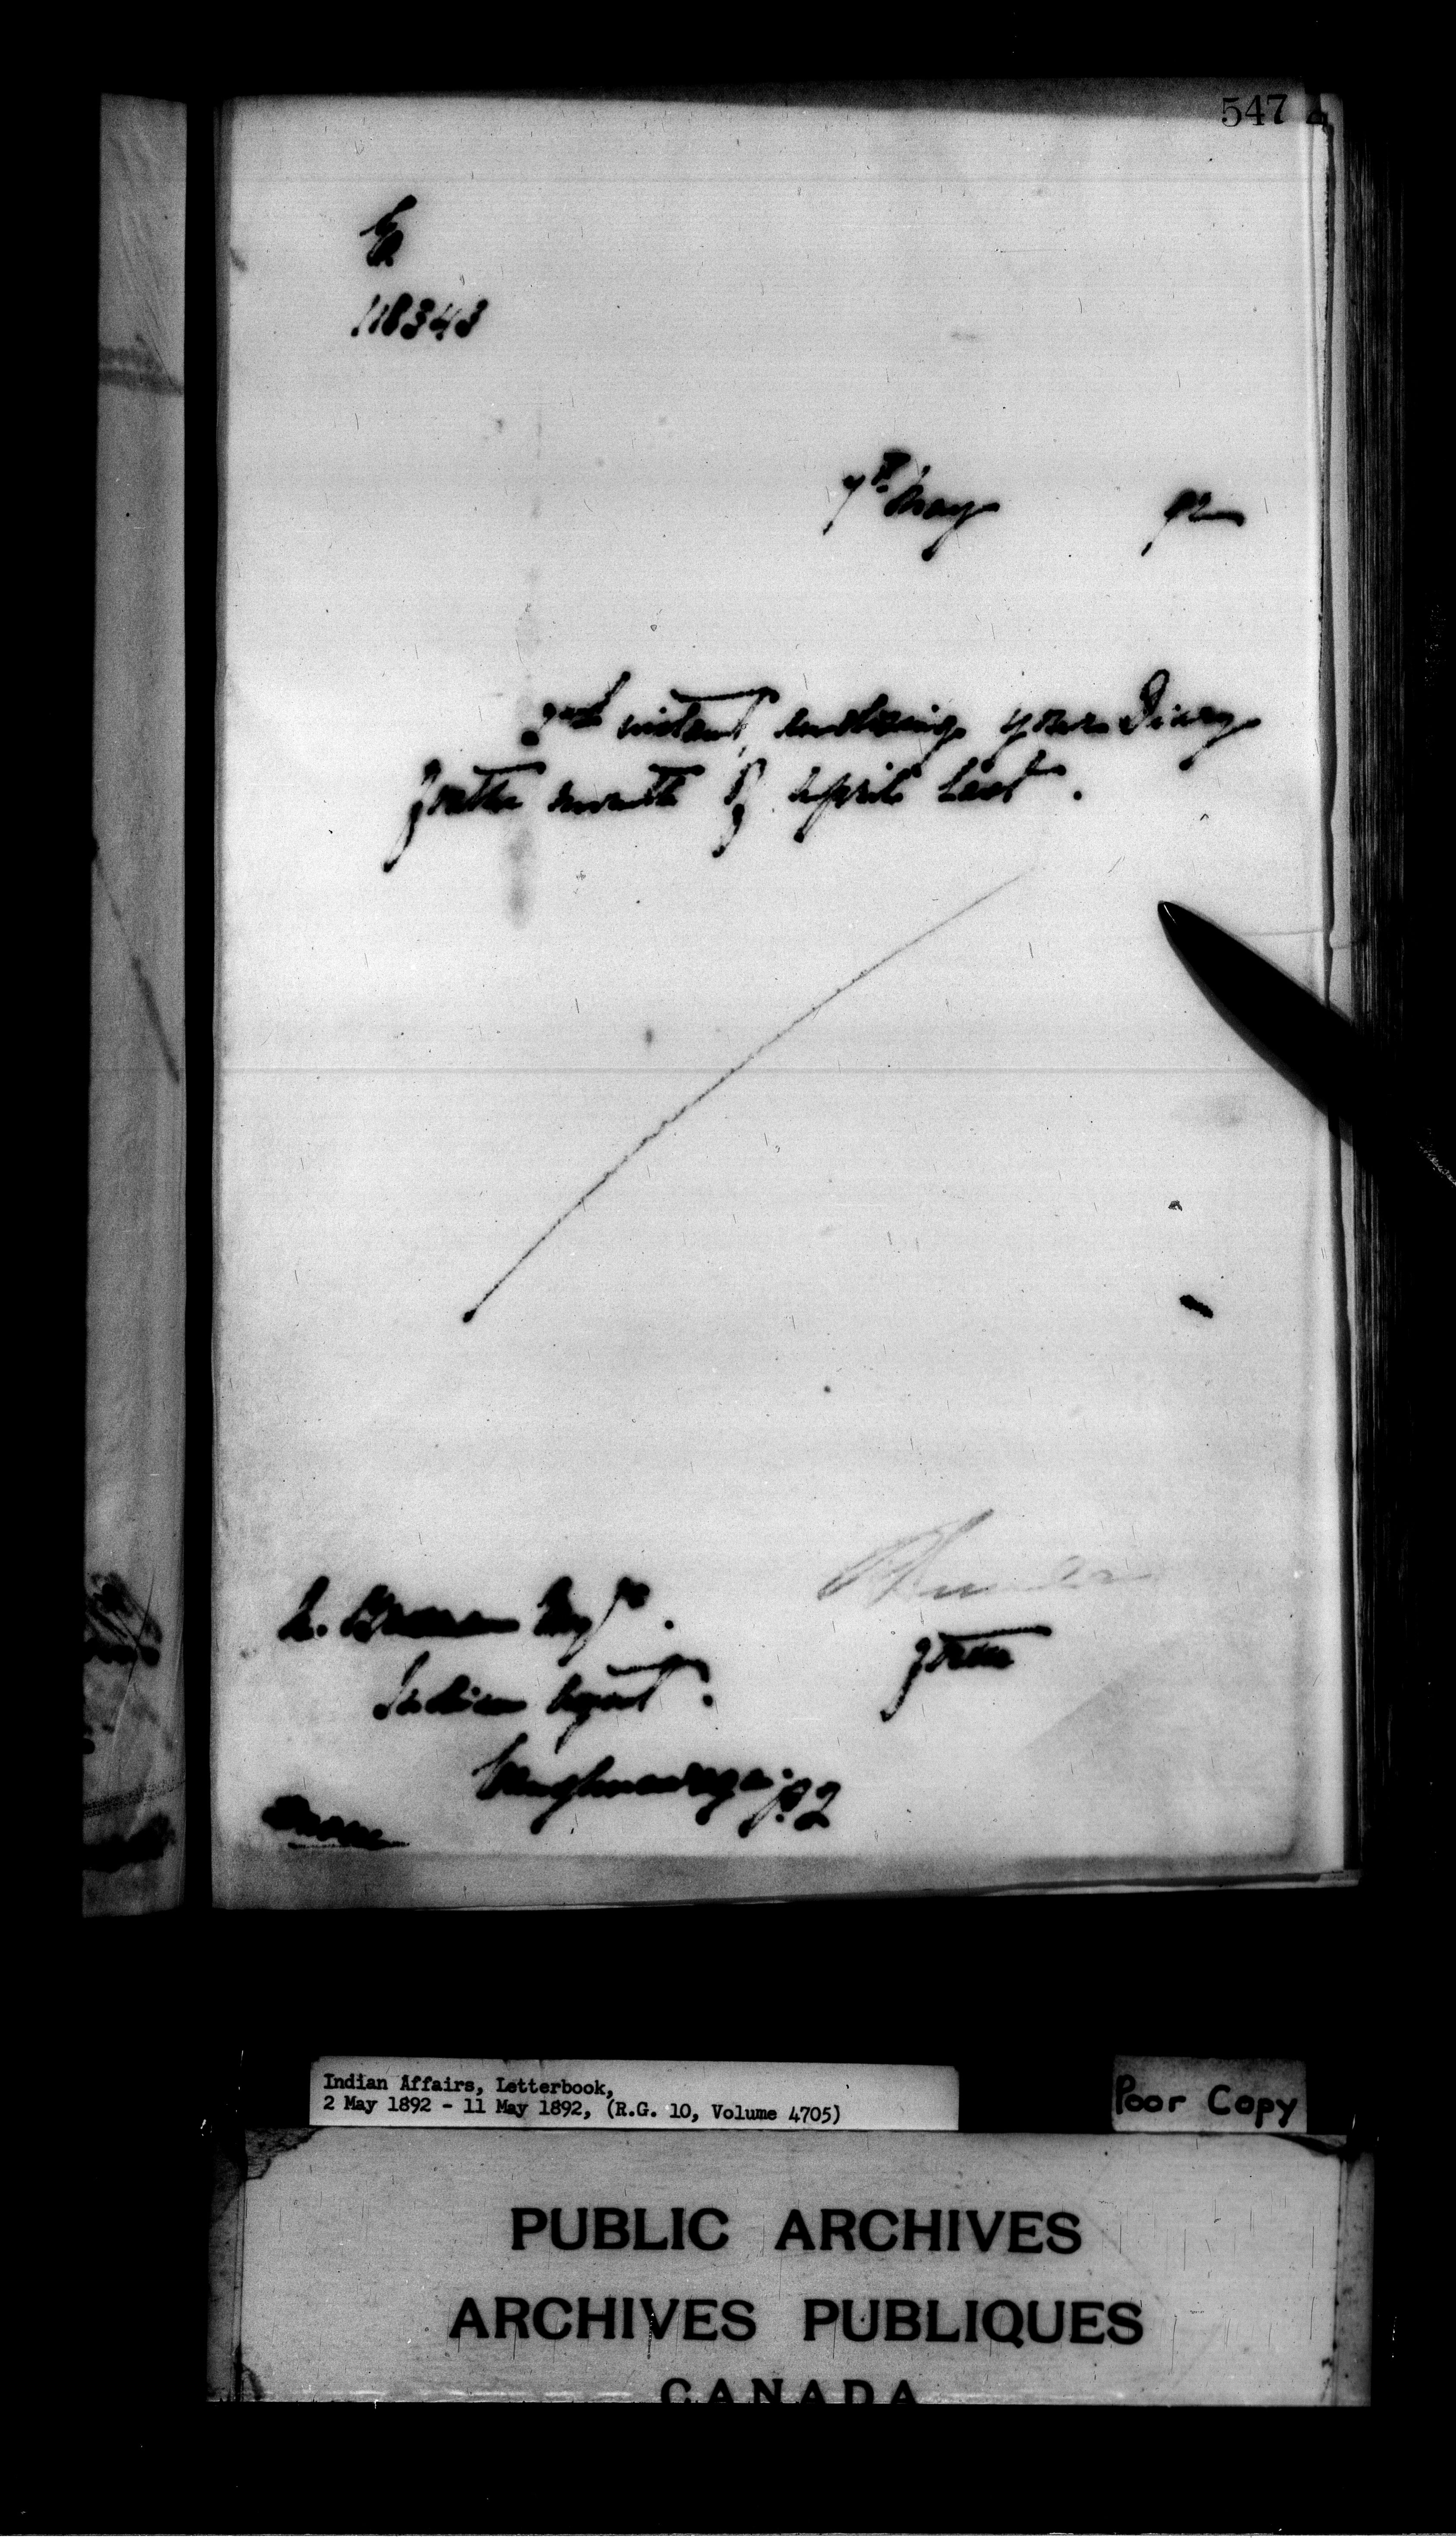 547
118343
7th May 92
2nd instant, enclosing your Diary
for the month of April last.
A. Brosseau Esqre.
Indian Agent.
for the
Caughnawaga. P.Q
Indian Affairs, Letterbook,
2 May 1892 - 11 May 1892, (R.G. 10, Volume 4705)
Poor Copy
PUBLIC ARCHIVES
ARCHIVES PUBLIQUES
CANADA